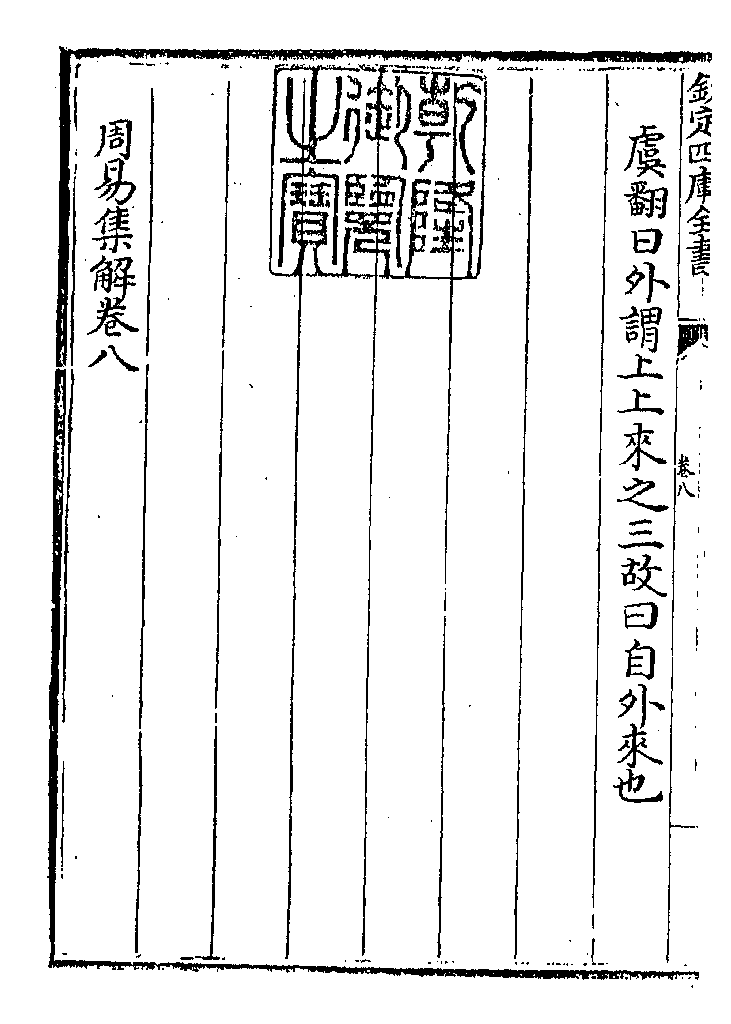 欽定四庫全書
卷八
虞翻曰外謂上上來之三故曰自外來也
乾隆御覽之寶
周易集解卷八